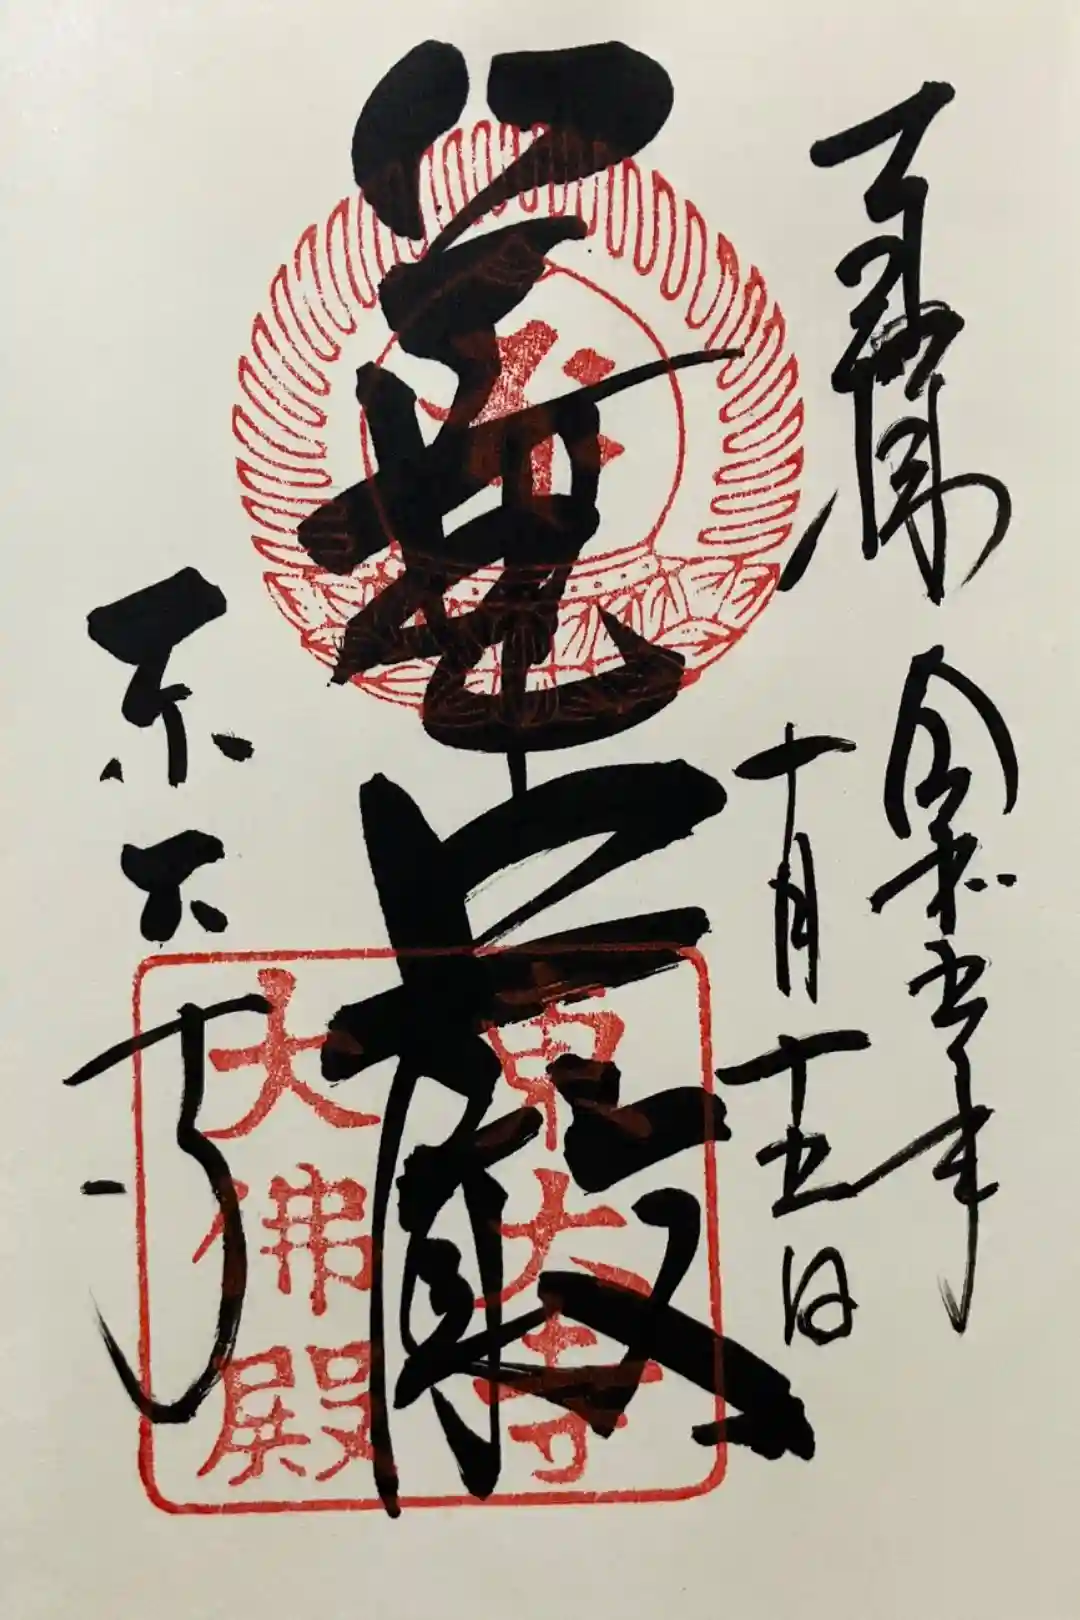 令和五年
十月十五日
華嚴
東大寺
東大寺
大佛殿